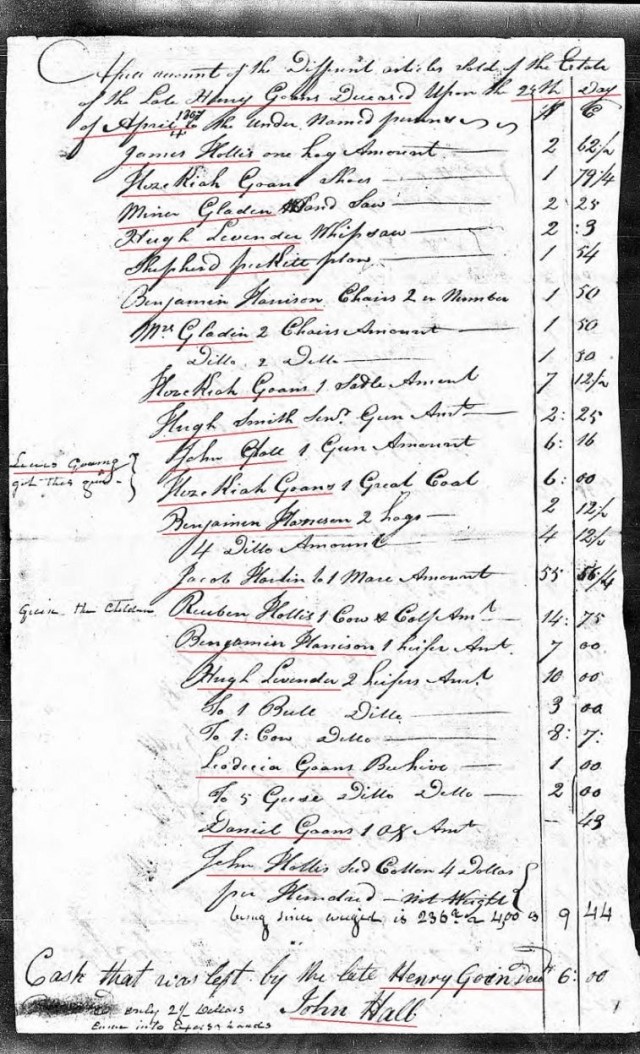 A free account of the Different articles sold of the Estate
of the Late Henry Goans Deceased Upon the 24th Day
of April 1807 to the Under Named persons
$ C
James Hollis one hog Amount 2 62½
Hezekiah Goans Shoes 1 79¼
Miner Gladen Hand Saw 2 25
Hugh Levender Whipsaw 2 :3
Shepherd pickett plow 1 54
Benjamin Harrison Chairs 2 in Number 1 50
Mrs Gladin 2 Chairs Amount 1 50
Ditto 2 Ditto 1 50
Hezekiah Goans 1 Sadle Amount 7 12½
Hugh Smith Senr Gun Amt 2: 25
John 1 Gun Amount 6: 16
Lewis Gowing
got this gun
Hezekiah Goans 1 Great Coat 6: 00
Benjamen Harrison 2 hogs 2 12½
4 Ditto Amount 4 12½
Jacob Hartin to 1 Mare Amount 55 56¼
the Children
Reuben Hollis 1 Cow & Calf Amt 14: 75
Benjamin Harrison 1 heifer Amt 7 00
Hugh Levender 2 heifers Amt 10 00
To 1 Bull Ditto 3 00
To 1: Cow Ditto 8: 7:
Leodicia Goans Beehive 1 00
To 5 Geese Ditto Ditto 2 00
Daniel Goans 1 Ox Amt - 43
John Hollis Seed Cotton 4 Dollars
per Hundred - Not Weight
being since weighed is 236 a 4,00 is 9 44
Cash that was left by the late Henry Goin Decd 6: 00
only 2½ Dollars
Came into Exors hands
John Hall